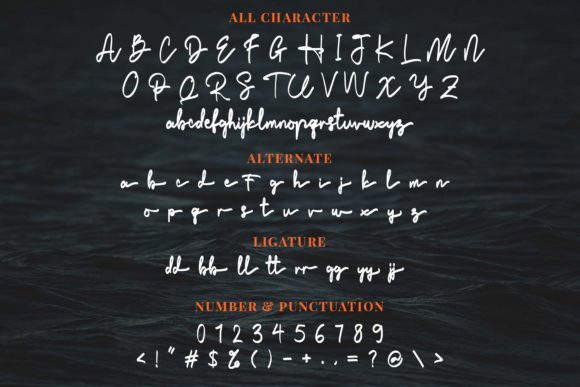 ALL CHARACTER
A B C D E F G H I J K L M N
O P Q R S T U V W X Y Z
abcdefghijklmnopqrstuvwxyz
ALTERNATE
a b c d e f g h i j k l m n
o p q r s t u v w x y z
LIGATURE
dd bb ll tt rr gg yy jj
NUMBER & PUNCTUATION
0 1 2 3 4 5 6 7 8 9
< ! " # $ % ( ) - + . . = ? @ \ >